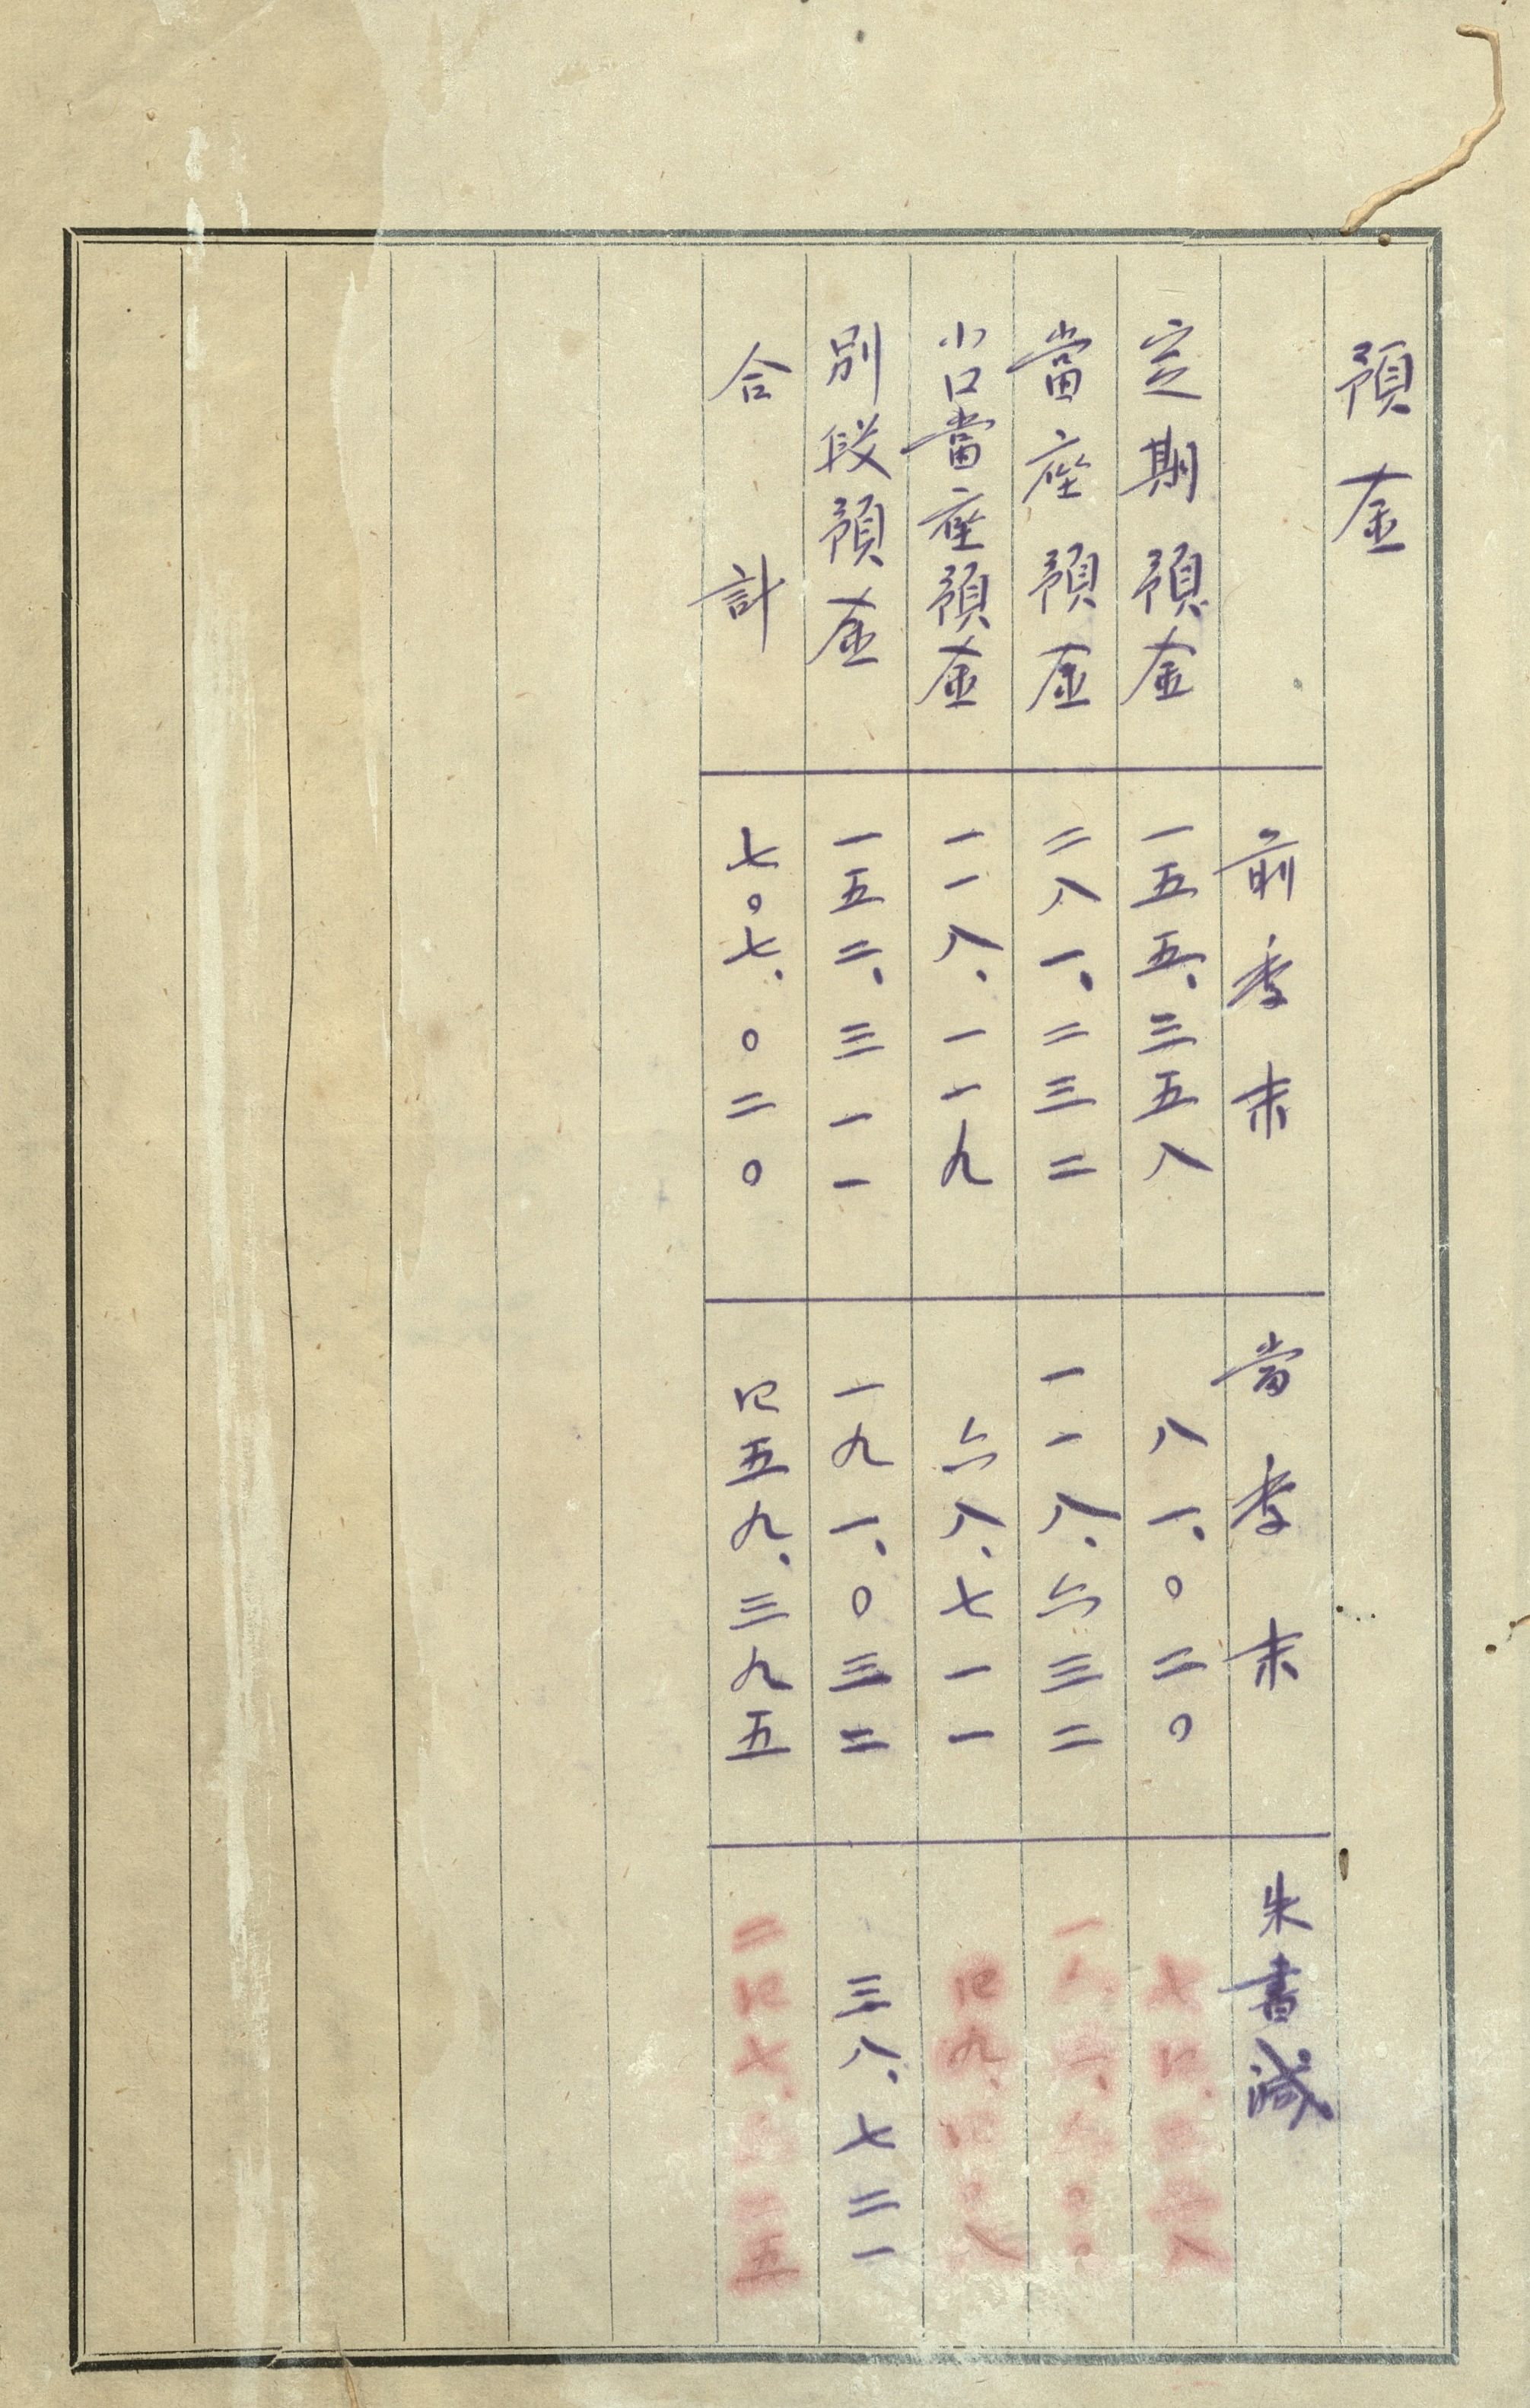 預金
前季末 當季末 朱書減
定期預金 一五五、三五八 八一、〇二〇 七四、三三八
當座預金 二八一、二三二 一一八、六三二 一六二、六〇〇
小口當座預金 一一八、一一九 六八、七一一 四九、四〇八
別段預金 一五二、三一一 一九一、〇三二 三八、七二一
合計 七〇七、〇二〇 四五九、三九五 二四七、六二五